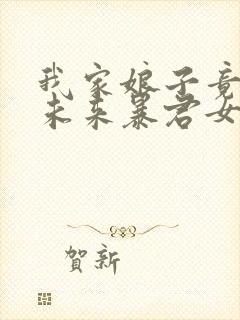 我家娘子竟
未来暴君女
賀新